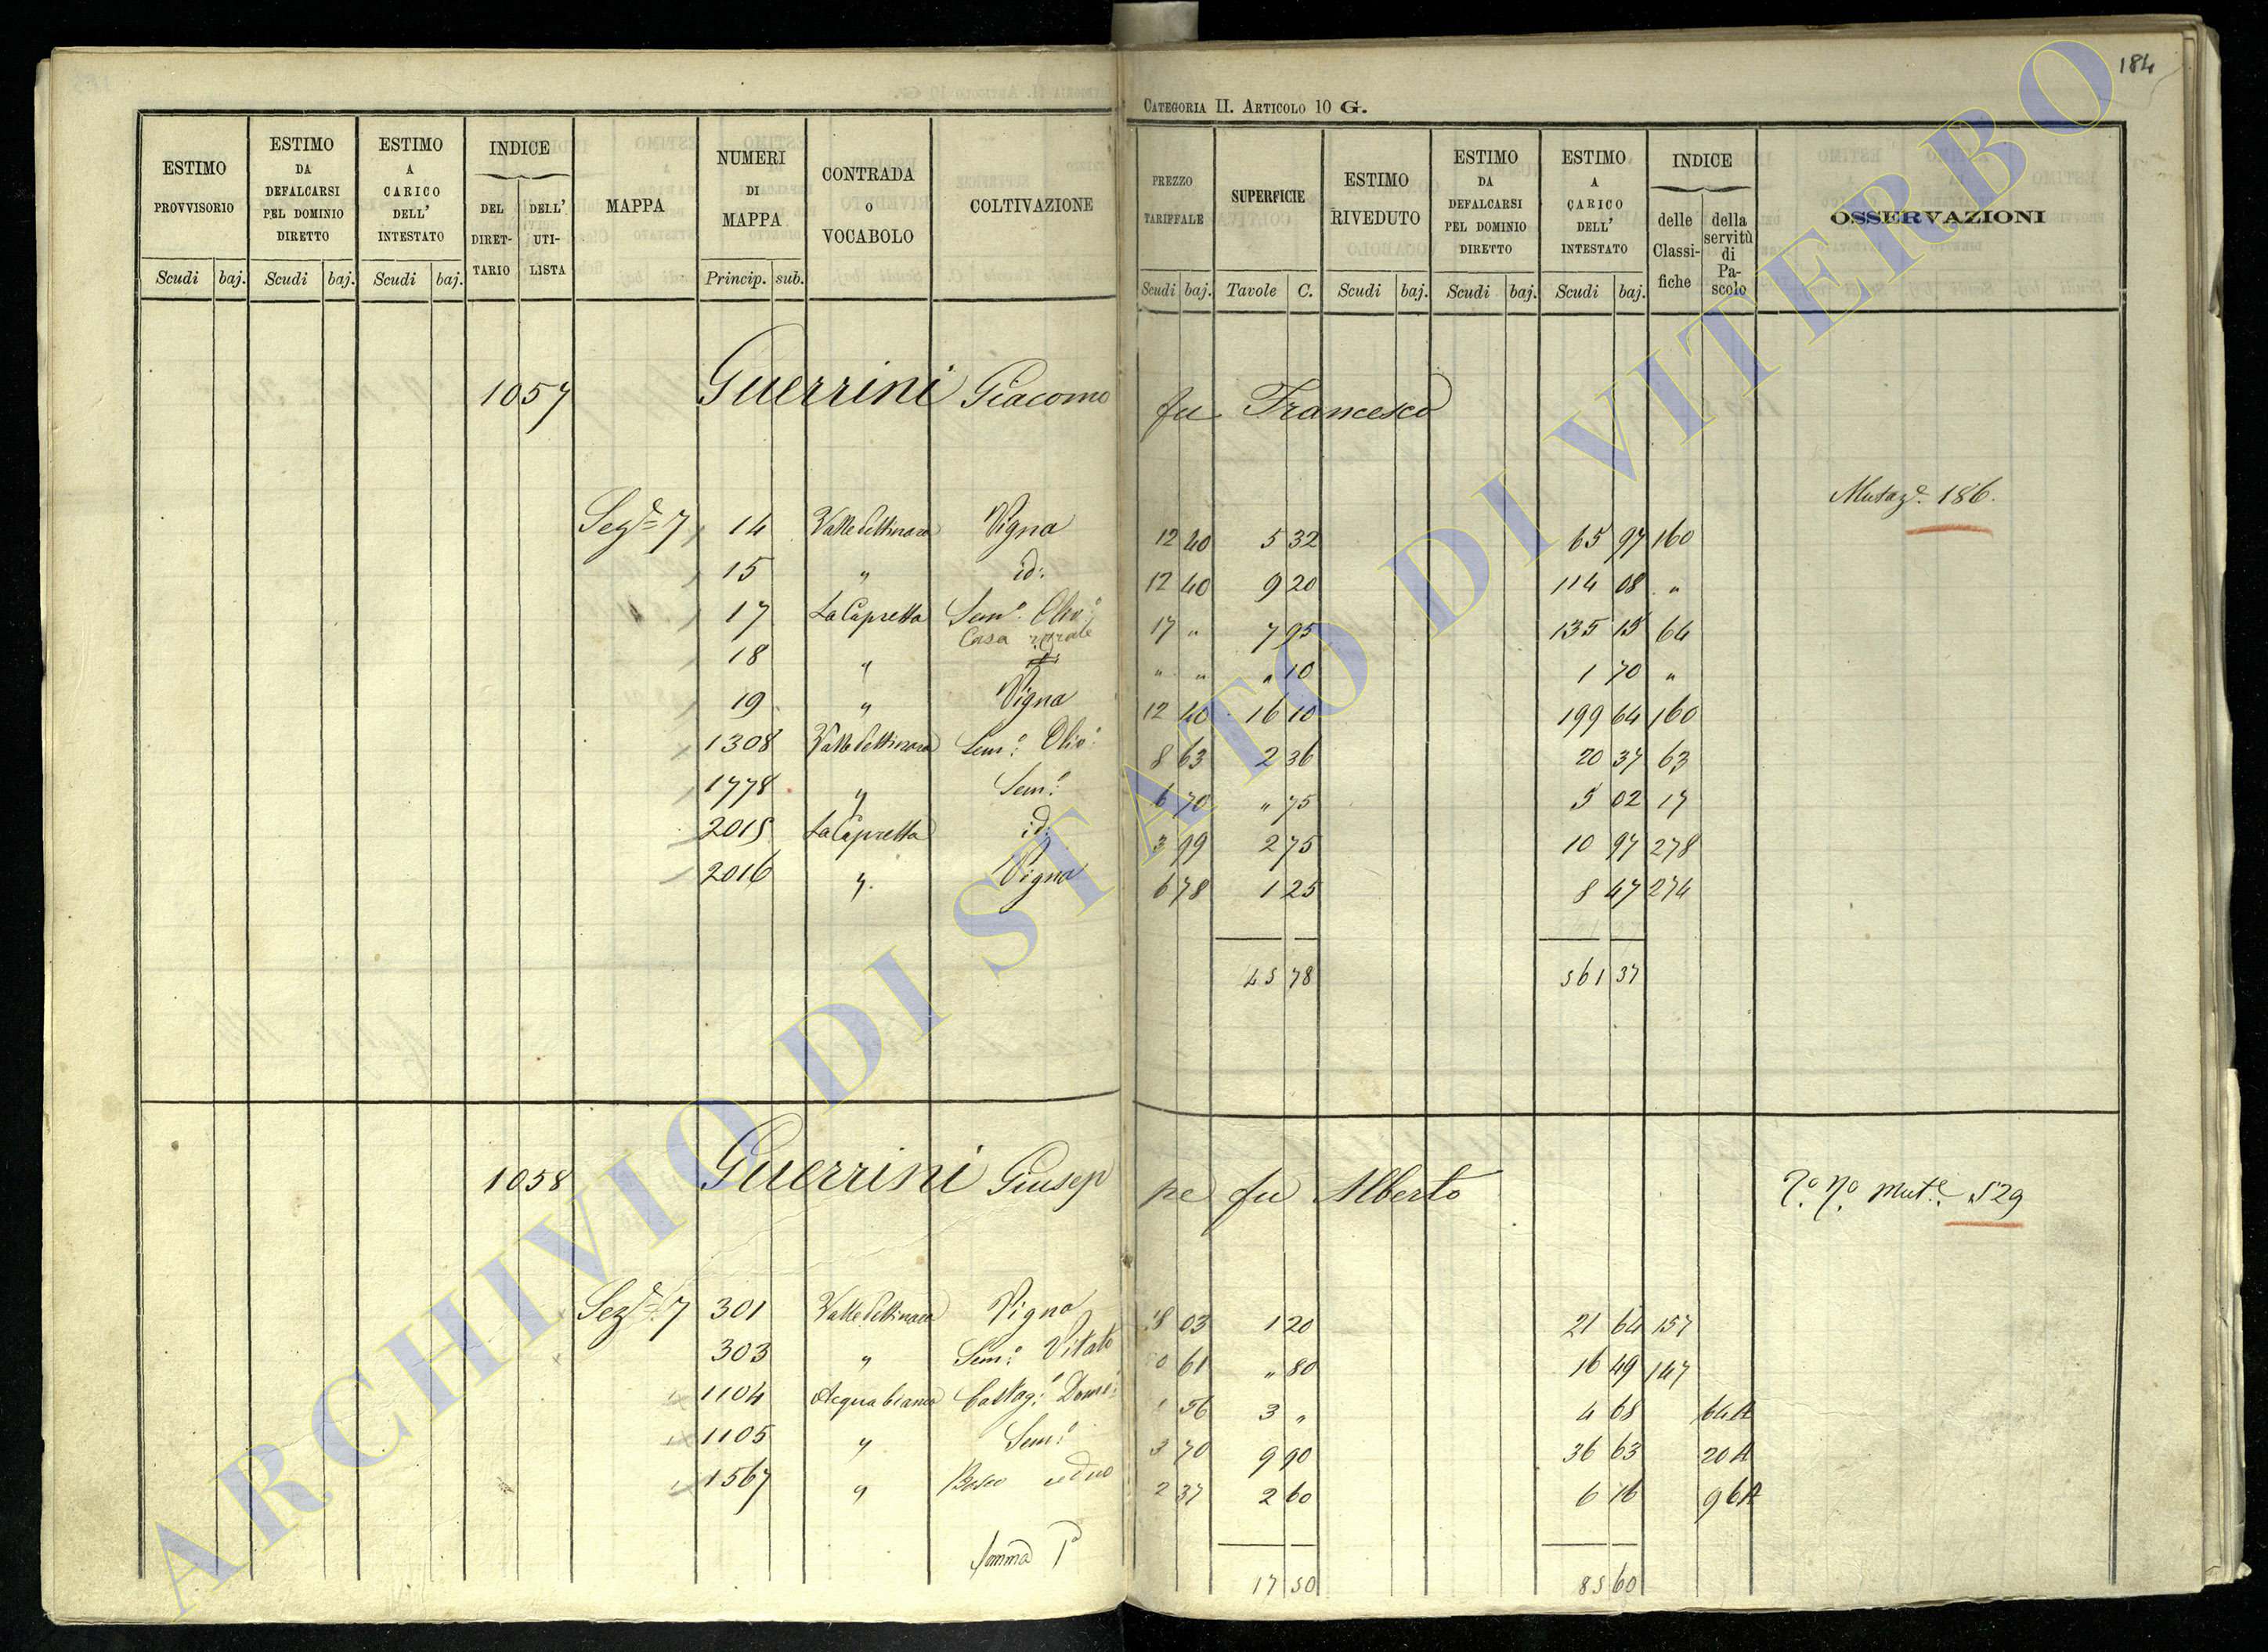 184
CATEGORIA II. ARTICOLO 10 G.
ESTIMO PROVVISORIO
ESTIMO DA DEFALCARSI PEL DOMINIO DIRETTO
ESTIMO A CARICO DELL' INTESTATO
INDICE
DEL DIRET- TARIO
DELL' UTI- LISTA
MAPPA
NUMERI DI MAPPA
CONTRADA O VOCABOLO
COLTIVAZIONE
PREZZO TARIFFALE
SUPERFICIE
ESTIMO RIVEDUTO
ESTIMO DA DEFALCARSI PEL DOMINIO DIRETTO
ESTIMO A CARICO DELL' INTESTATO
INDICE
delle Classi- fiche
della servitù di Pa- scolo
OSSERVAZIONI
Scudi baj. Scudi baj. Scudi baj. Princip. sub. Scudi baj. Tavole C. Scudi baj. Scudi baj. Scudi baj.
1057 Guerrini Giacomo fu Francesco
Mutaz.e 186.
Sez.e 7 14 Valle Pettinara Vigna 12 40 5 32 65 97 160
15 " id: 12 40 9 20 114 08 "
17 La Capretta Sem.o Oliv.o 17 " 7 95 135 15 64
18 " Casa rurale " " " 10 1 70 "
19 " Vigna 12 40 16 10 199 64 160
1308 Valle Pettinara Sem.o Oliv.o 8 63 2 36 20 37 63
1778 " Sem.o 6 70 " 75 5 02 17
2015 La Capretta id: 3 99 2 75 10 97 278
2016 " Vigna 6 78 1 25 8 47 274
45 78 561 37
1058 Guerrini Giuseppe fu Alberto
Mut.e 529
Sez.e 7 301 Valle Pettinara Vigna 18 03 1 20 21 64 157
303 " Sem.o Vitato 61 " 80 16 49 147
1104 Acquabianca Castag.o Dome.o 1 56 3 " 4 68 64A
1105 " Sem.o 3 70 9 90 36 63 20A
1567 " Bosco ceduo 2 37 2 60 6 16 96A
Somma
17 50 85 60
ARCHIVIO DI STATO DI VITERBO